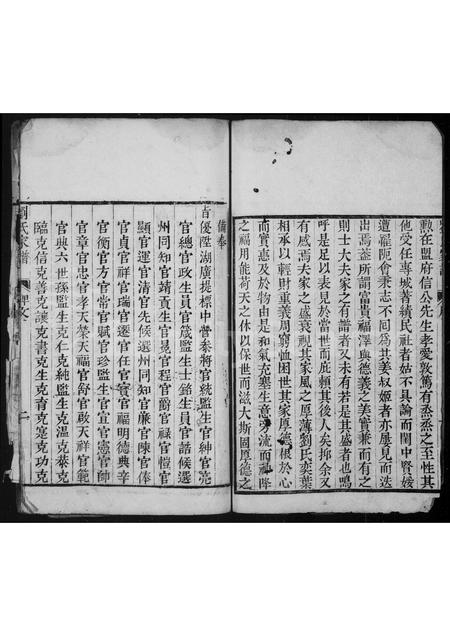 勲在盟府信公先生孝愛敦篤有烝烝之至性其
他受任專城著績民社者姑不具論而閨中賢媛
遭罹阨會秉志不同為其姜叔姬者亦屢見而迭
出焉葢所謂富貴福澤與德義之美實兼而有之
則士大夫家之有譜者又未有若是其盛者也鳴
呼是足以表見於當世而庇賴其後人矣抑余又
有感焉夫家之盛衰視其家風之厚薄劉氏奕葉
相承以輕財重義周窮恤困世其家厚德根於心
而實惠及於物由是和氣充塞生意旁流而神降
之福用能荷天之休以保世而滋大斯固厚德之
備奉
旨優陞湖廣提標中營叅將官統監生官紳官亮
官總官政生員官箴監生士銘生員官誥候選
州同知官靖貢生官晃官程官爵官祿官愷官
顯官運官清官先候選州同知官廉官陳官俸
官貞官祥官瑞官遷官任官實官福明德典辛
官衡官方官常官賦官珍監生官宜官憲官師
官章官忠官孝天榮天福官舒官啟天祥官範
官典六世孫監生克仁克純監生克溫克蔡克
臨克信克善克讓克書克生克育克寔克功克
劉氏家譜